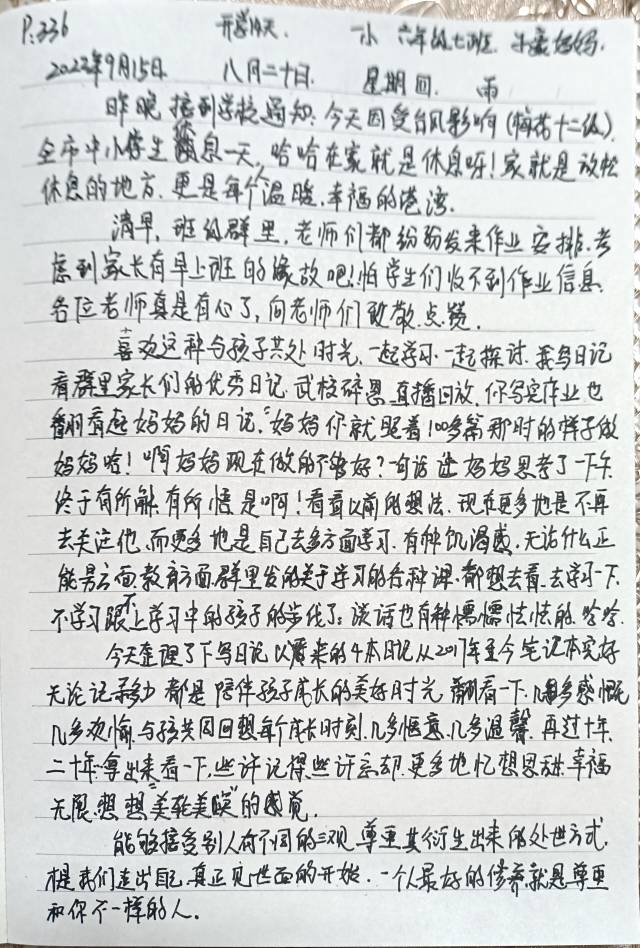 P:336 开学16天. 一小 六年级七班. 妈妈.
2022年9月15日. 八月二十日. 星期四. 雨
昨晚接到学校通知:今天因受台风影响(梅花十二级).
全市中小学生休息一天,哈哈在家就是休息呀!家就是放松
休息的地方.更是每个温暖.幸福的港湾.
清早,班级群里,老师们都纷纷发来作业安排.考
虑到家长有早上班的缘故吧!怕学生们收不到作业信息.
各位老师真是有心了,向老师们致敬.点赞.
喜欢这种与孩子共处时光,一起学习.一起探讨.我写日记
看群里家长们的优秀日记.武校碎思.直播回放.你写完作业也
翻看起妈妈的日记."妈妈你就照着100多篇那时的样子做
妈妈哈!啊妈妈现在做的不够好?一句话让妈妈思考了一下午
终于有所解.有所悟是啊!看看以前的想法.现在更多地是不再
去关注他,而更多地是自己去多方面学习.有种饥渴感.无论什么正
能量方面.教育方面.群里发的关于学习的各种课.都想去看.去学习一下.
不学习跟不上学习中的孩子的步伐了:谈话也有种懦懦怯怯的.哈哈.
今天整理了下写日记以来的4本日记从2017年至今笔记本完好
无论记录多少都是陪伴孩子成长的美好时光翻看一下.几多感慨
几多欢愉.与孩共同回想每个成长时刻.几多惬意.几多温馨.再过十年.
二十年.拿出来看一下,些许记得些许忘却.更多地忆想思甜.幸福
无限.想想"美轮美奂"的感觉.
能够接受别人有不同的三观.尊重其衍生出来的处世方式.
才是我们走出自己.真正见世面的开始.一个人最好的修养就是尊重
和你不一样的人.